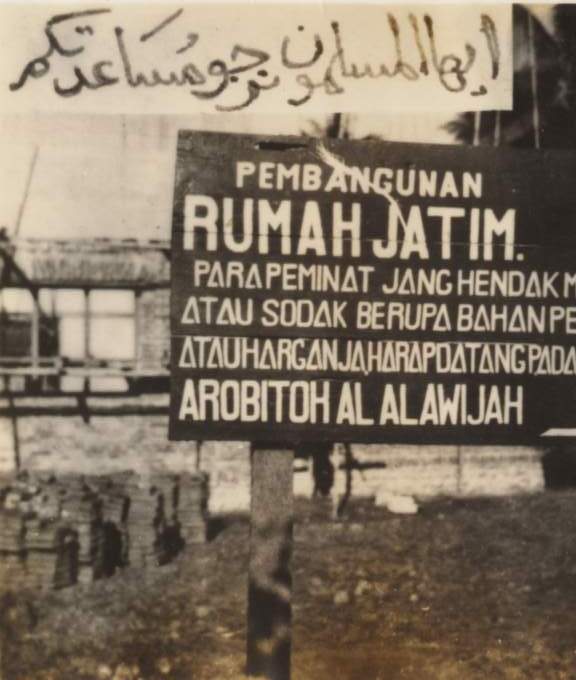 ايها المسلمون نرجو مُساعدتكم
PEMBANGUNAN
RUMAH JATIM.
PARA PEMINAT JANG HENDAK M
ATAU SODAK BERUPA BAHAN PE
ATAU HARGANJA, HARAP DATANG PADA
AROBITOH AL ALAWIJAH